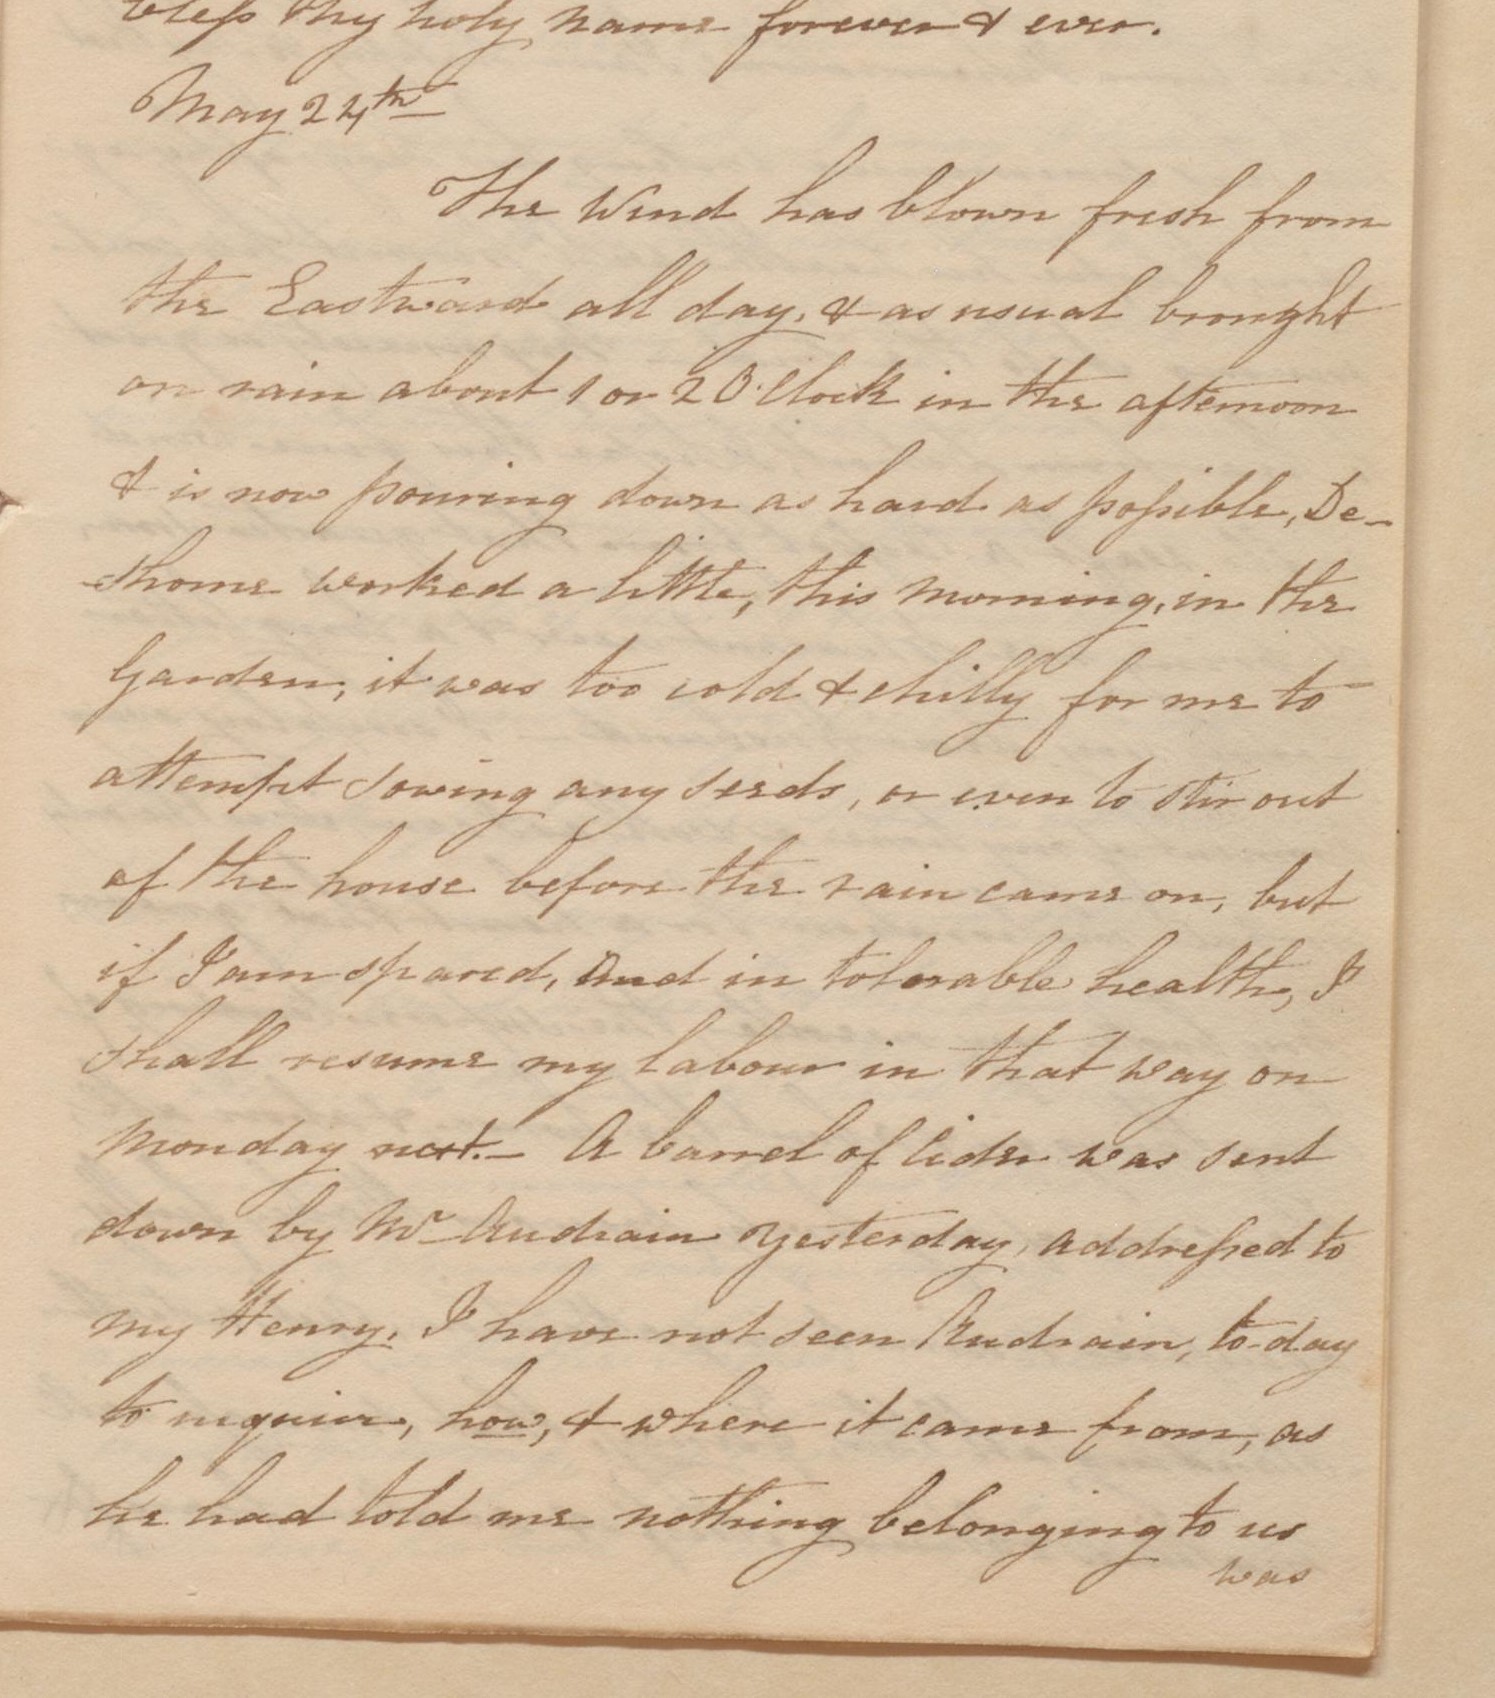 bless thy holy name forever & ever.
May 24th
The Wind has blown fresh from
the Eastward all day, & as usual brought
on rain about 1 or 2 O'Clock in the afternoon
& is now pouring down as hard as possible, De-
-shome worked a little, this morning, in the
Garden, it was too cold & chilly for me to
attempt sowing any seeds, or even to stir out
of the house before the rain came on, but
if I am spared, and in tolerable health, I
shall resume my labour in that way on
Monday next. - A barrel of Cider was sent
down by Mr Audrain yesterday, addressed to
my Henry, I have not seen Audrain, to-day
to enquire, how, & where it came from, as
he had told me nothing belonging to us
was